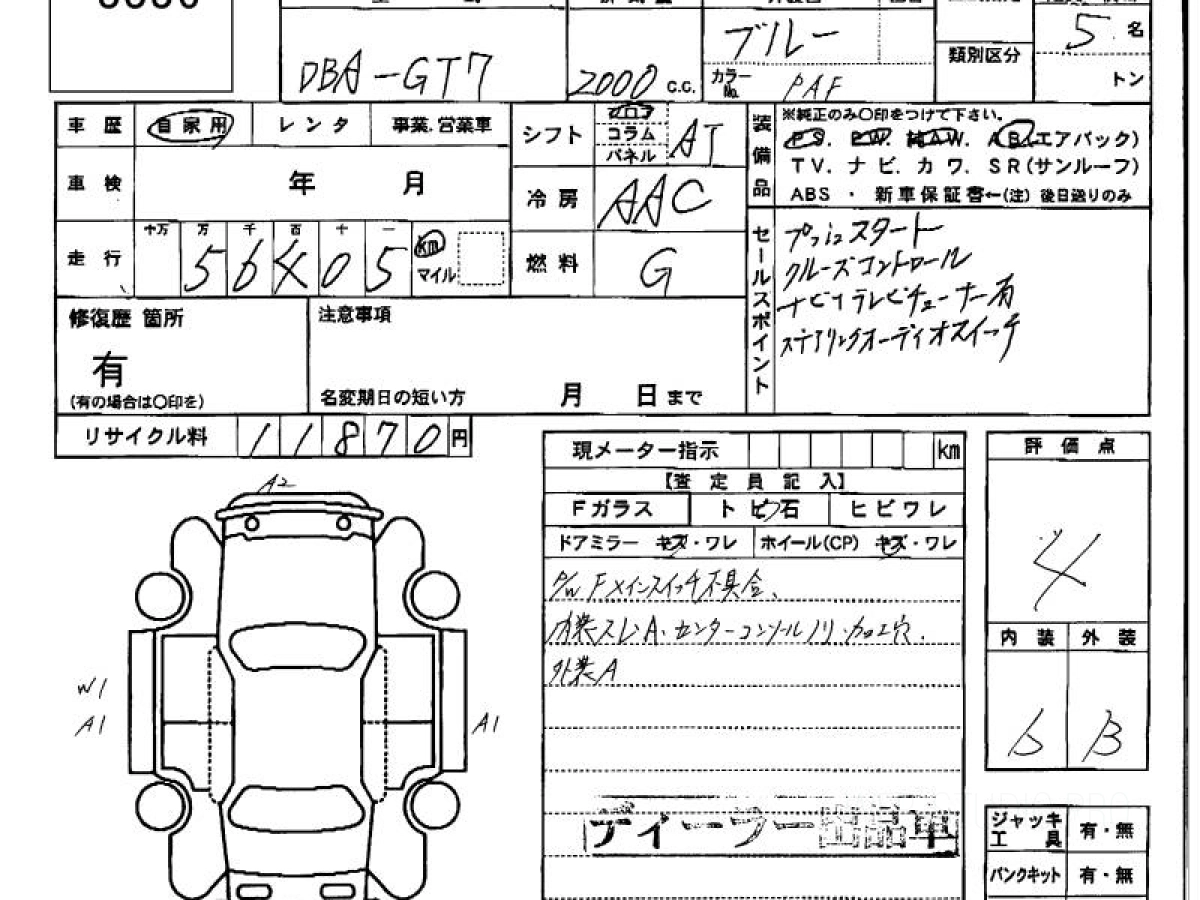 DBA-GT7
2000 C.C.
ブルー
カラーNo. PAF
類別区分
5 名
トン
車歴 自家用 レンタ 事業.営業車
シフト フロア コラム パネル AT
装備品
※純正のみ〇印をつけて下さい。
PS. PW. 純AW. AB(エアバック)
TV. ナビ. カワ. SR(サンルーフ)
ABS ・ 新車保証書←(注) 後日送りのみ
車検 年 月
冷房 AAC
走行 十万 万 千 百 十 一
56405 km マイル
燃料 G
セールスポイント
プッシュスタート
クルーズコントロール
ナビTテレビチューナー有
ステアリングオーディオスイッチ
修復歴 箇所
有
(有の場合は〇印を)
注意事項
名変期日の短い方 月 日まで
リサイクル料 11870円
現メーター指示 km
【査定員記入】
Fガラス トビ石 ヒビワレ
ドアミラー キズ・ワレ ホイール(CP) キズ・ワレ
P/W Fメインスイッチ不具合、
内装スレ.A.センターコンソールノリ.加工穴.
外装A
ディーラー出品車
評価点
4
内装 外装
b B
ジャッキ工具 有・無
パンクキット 有・無
A2
W1
A1
A1